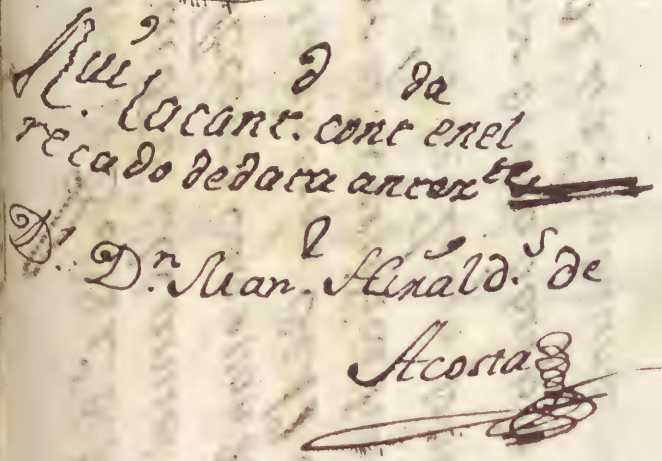 R.ui la cant.d cont.da en el
recado de data antez.te
D.r D.n Man.l Hiñald.s de
Acosta